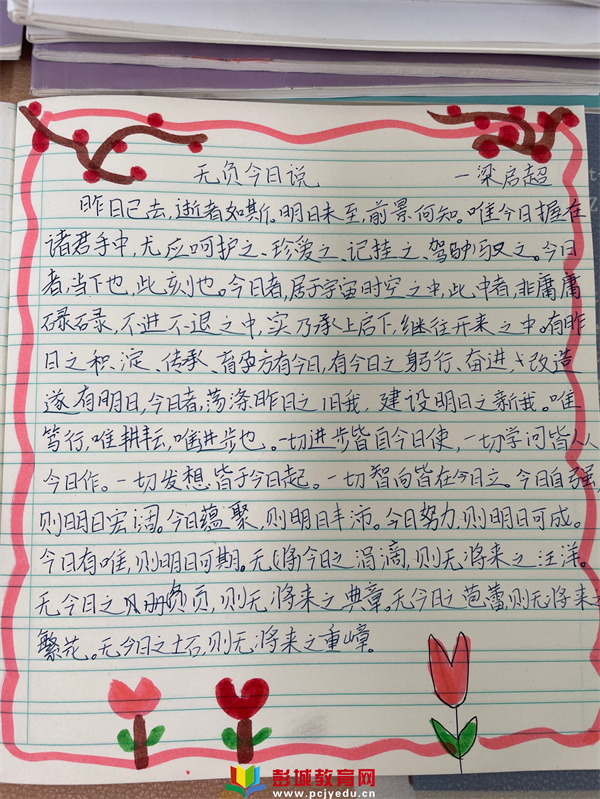 无负今日说
一梁启超
昨日已去,逝者如斯。明日未至,前景何知。唯今日握在
诸君手中,尤应呵护之、珍爱之、记挂之、驾驭之。今日
者,当下也,此刻也。今日者,居于宇宙时空之中,此中者,非庸庸
碌碌,不进不退之中,实乃承上启下,继往开来之中。有昨
日之积淀、传承、育孕方有今日,有今日之躬行、奋进、改造
遂有明日,今日者,荡涤昨日之旧我,建设明日之新我。唯
笃行,唯耕耘,唯进步也。一切进步皆自今日使,一切学问皆从
今日作。一切发想皆于今日起。一切智向皆在今日立。今日自强,
则明日宏阔。今日蕴聚,则明日丰沛。今日努力,则明日可成。
今日有唯,则明日可期。无今日之涓滴,则无将来之汪洋。
无今日之页,则无将来之典章。无今日之芭蕾,则无将来之
繁花。无今日之土石,则无将来之重嶂。
彭城教育网
www.pcjyedu.cn